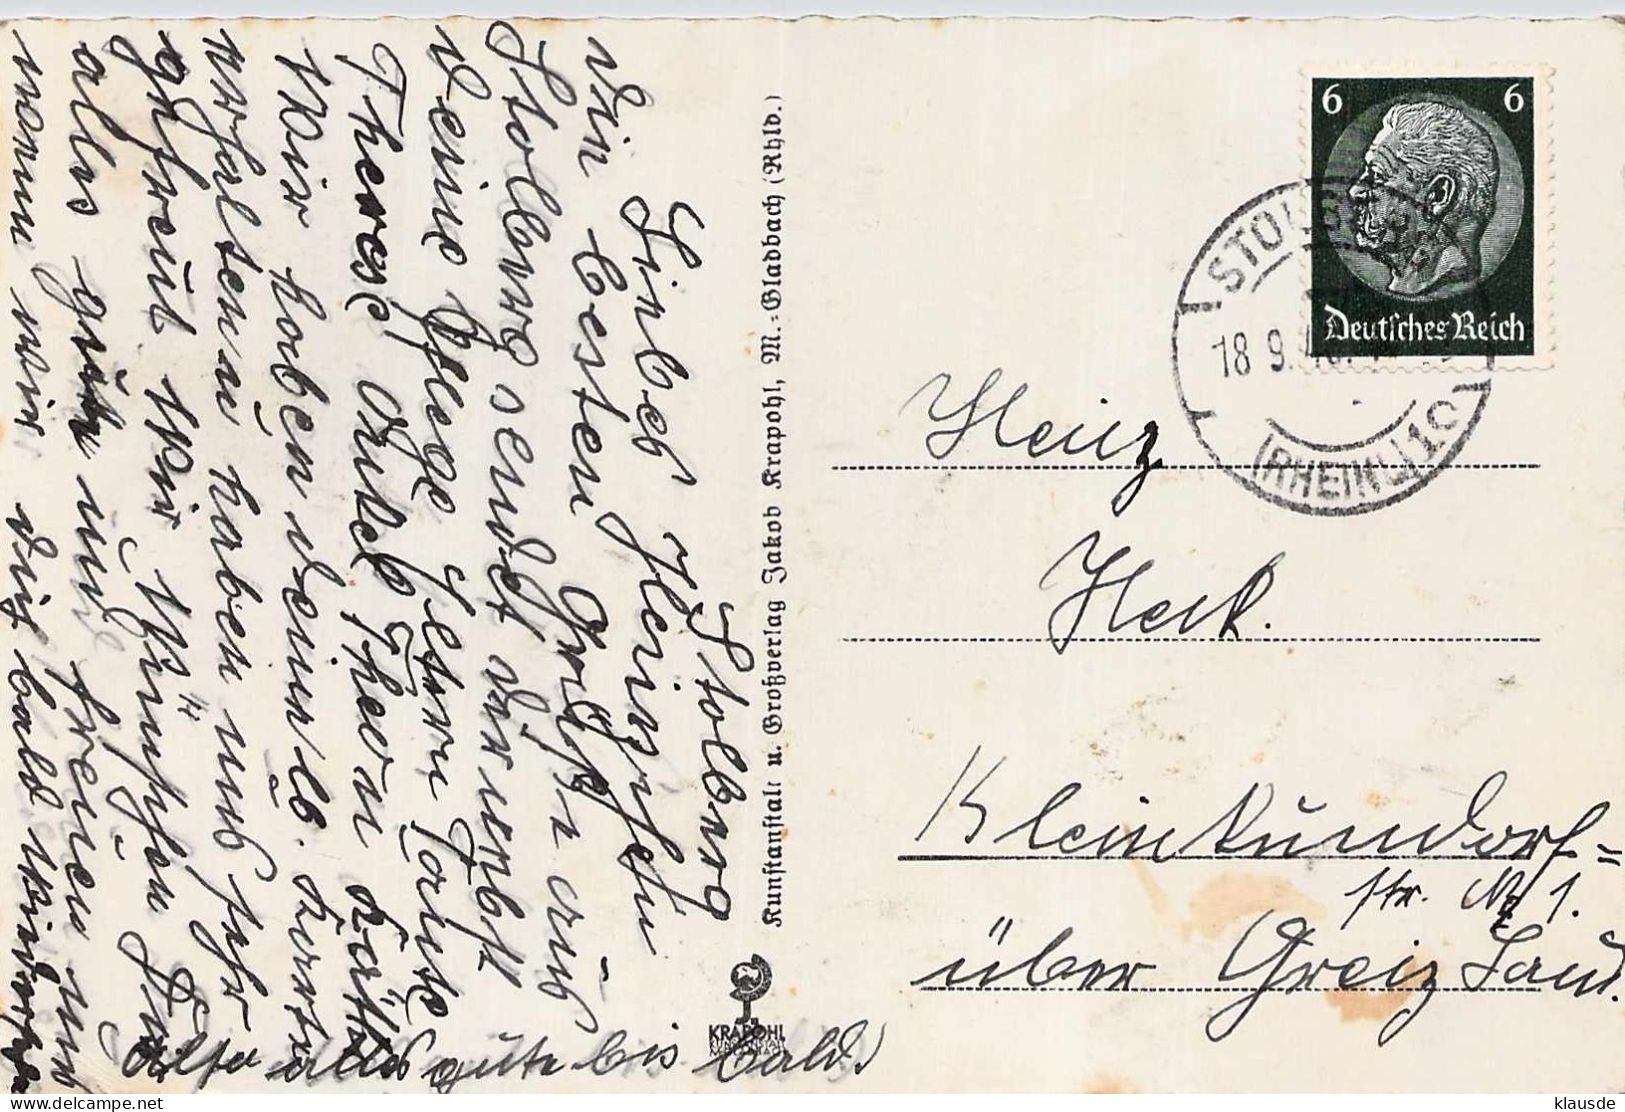 Stolberg
Liebes Heinzchen
die besten Grüße aus
Stolberg sendet dir nebst
deine Pflege Tante
Therese Onkel Theo u Käthe
Wir haben deine lb. Karte
erhalten u haben uns sehr
gefreut Wir Wünschen Dir
alles gute und freuen uns
wenn wir dich bald wiedersehen
Also alles gute bis bald.
Kunstanstalt u. Großverlag Jakob Krapohl, M.-Gladbach (Rhld.)
KRAPOHL
6 6
Deutsches Reich
STOLBERG
18 9.
(RHEINL) 10
Heinz
Heck.
Kleinkundorf=
str. No 1.
über Greiz Land.
klausde
www.delcampe.net